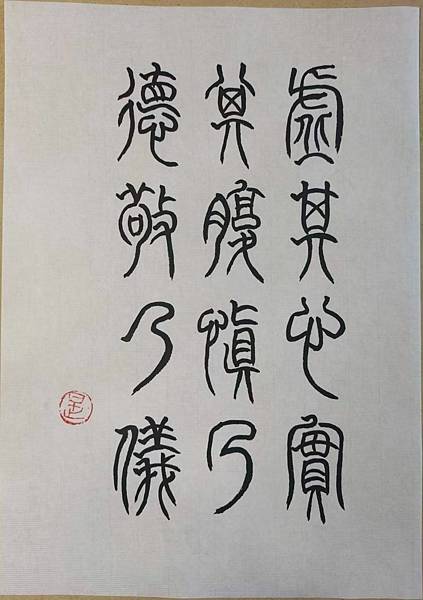 虛其心實
其腹慎乃
德敬乃儀